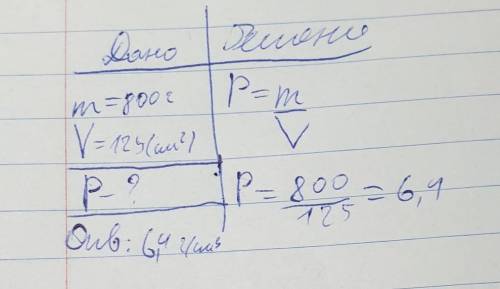 Дано Решение
m=800г P=m/V
V=125(см³)
P-? P=800/125=6,4
Отв: 6,4 г/см³